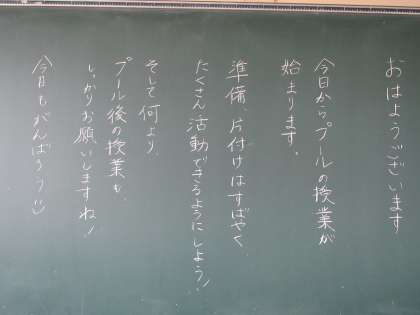 おはようございます
今日からプールの授業が
始まります。
準備、片付けはすばやく、
たくさん活動できるようにしよう！
そして何より、
プール後の授業も、
しっかりお願いしますね！
今日もがんばろう！☺